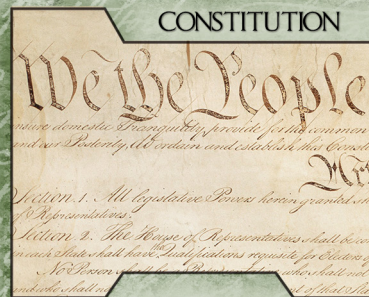 CONSTITUTION
We the People
insure domestic Tranquility, provide for the common
and our Posterity, do ordain and establish this Const
Section. 1. All legislative Powers herein granted sh
of Representatives.
Section. 2. The House of Representatives shall be co
in each State shall have the Qualifications requisite for Electors o
No Person shall be a Representative who shall not
and who shall not of that Sta